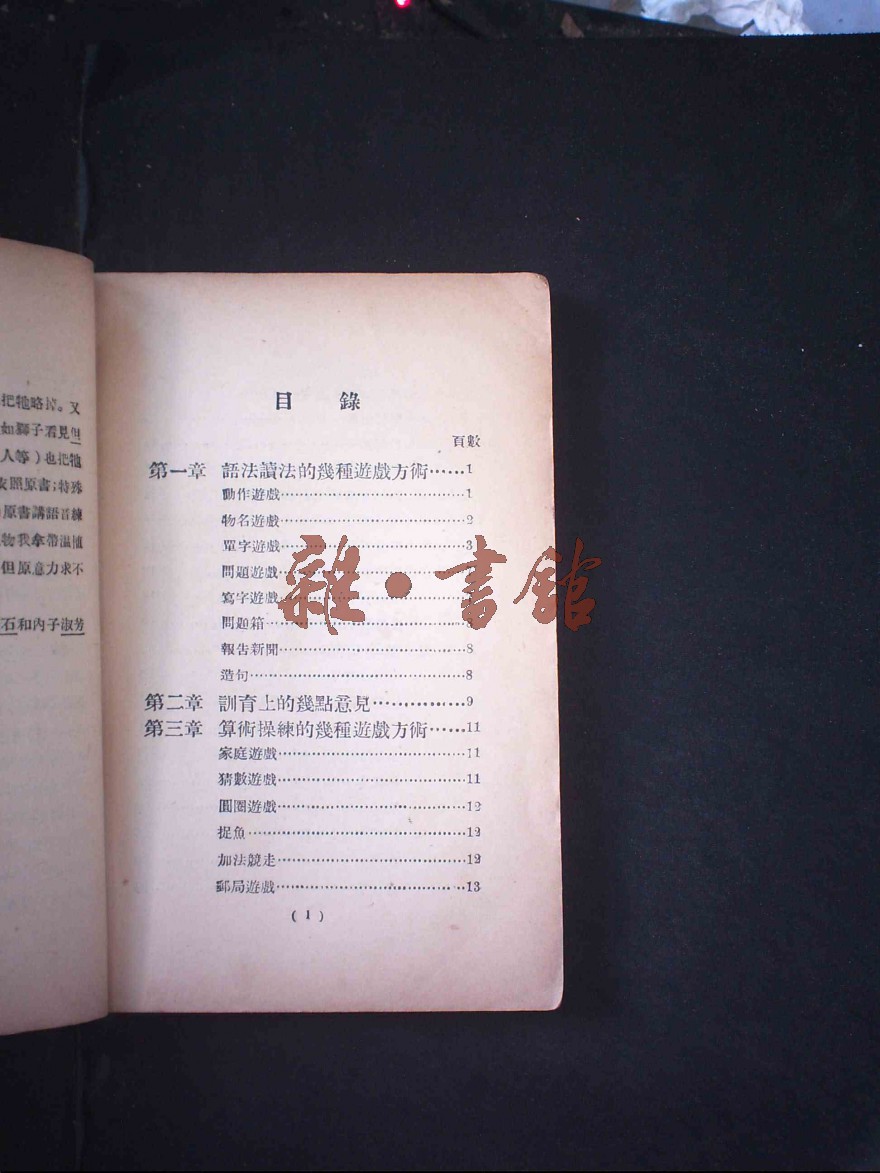 把牠略掉。又
如獅子看見但
人等）也把牠
依照原書；特殊
原書講語音練
物我拿帶溫
但原意力求不
石和內子淑芳
目錄
頁數
第一章 語法讀法的幾種遊戲方術……1
動作遊戲……1
物名遊戲……2
單字遊戲……3
問題遊戲……
寫字遊戲……
問題箱……
報告新聞……8
造句……8
第二章 訓育上的幾點意見……9
第三章 算術操練的幾種遊戲方術……11
家庭遊戲……11
猜數遊戲……11
圓圈遊戲……12
捉魚……12
加法競走……12
郵局遊戲……13
(1)
雜·書館